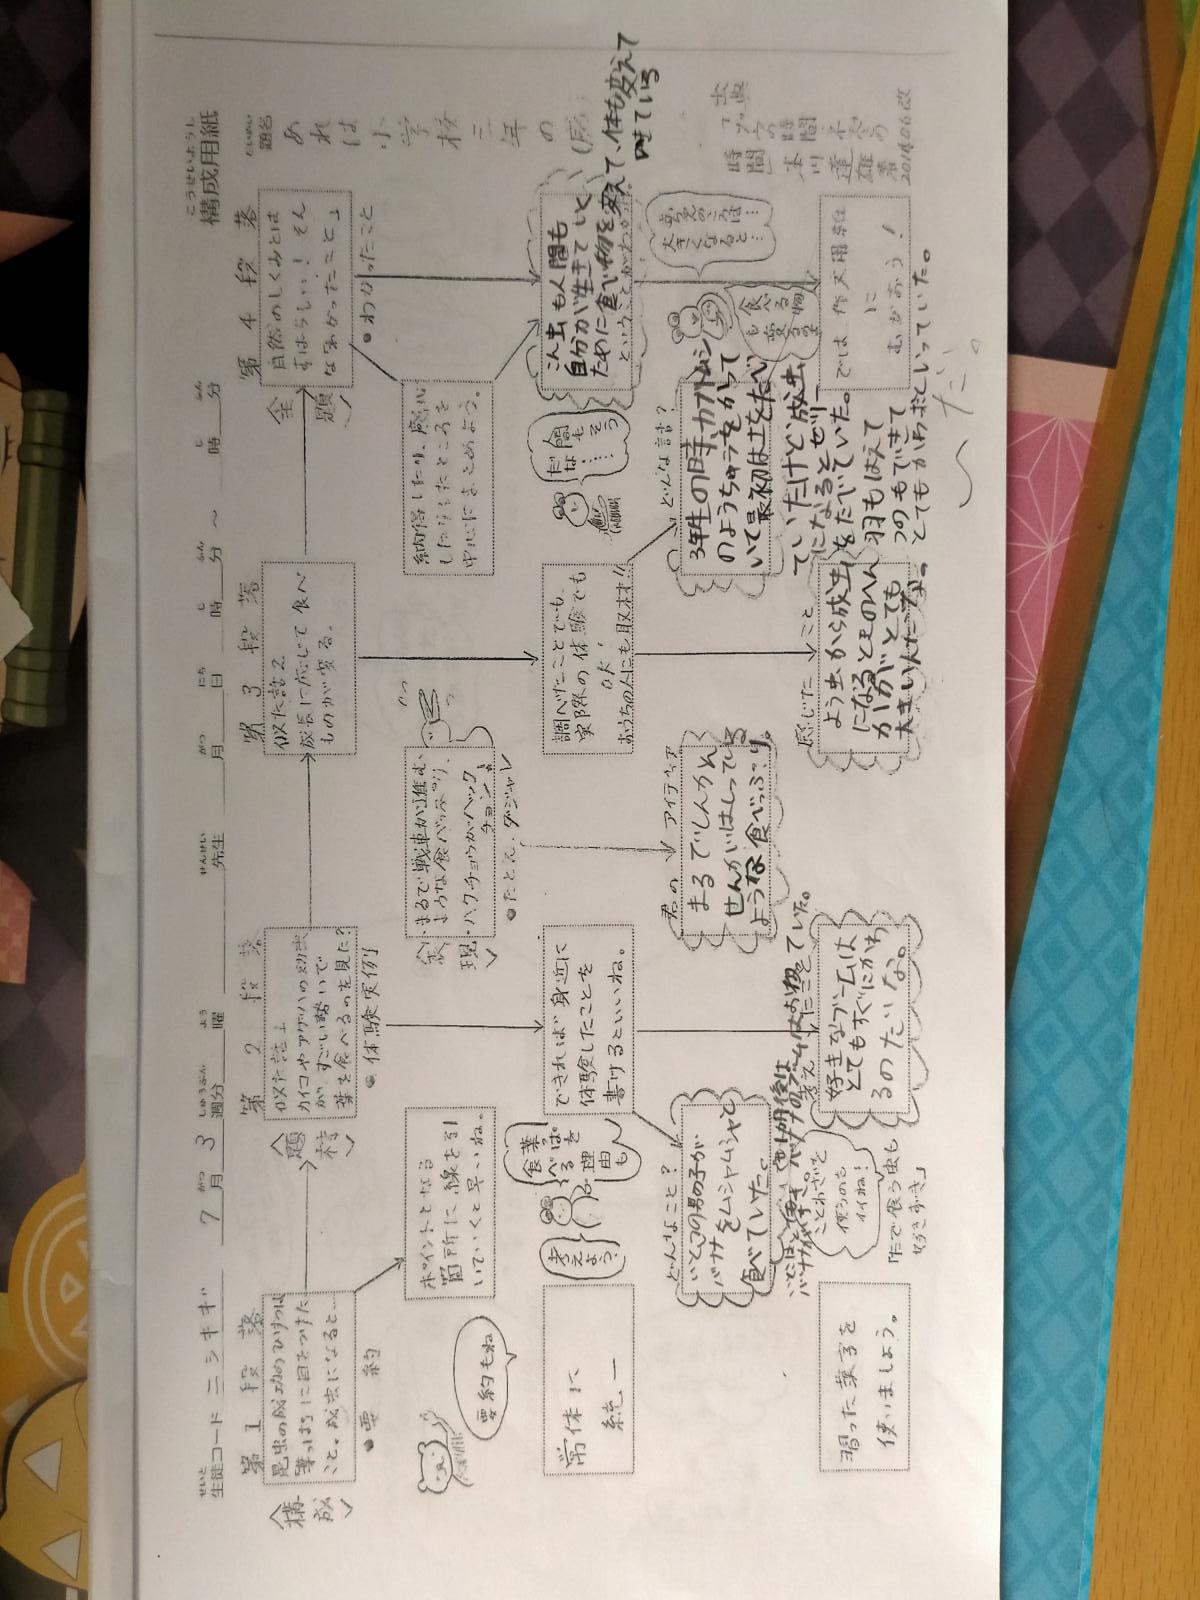 構成用紙
こうせいようし
題名
あれは小学校三年の
生徒コード ニシキギ 7月3週分 曜 先生 月 日 時 分 ～ 時 分
せいと がつ しゅうぶん よう せんせい がつ にち じ ふん じ ふん
〈構成〉
第1段落
昆虫の成功のひけつは
葉っぱに目をつけた
こと。成虫になると…
●要約
〈題材〉
第2段落
似た話1
カイコやアゲハの幼虫
が、すごい勢いで
葉を食べるのを見た?
●体験実例
第3段落
似た話2
成長に応じて食べ
ものが変る。
〈主題〉
第4段落
自然のしくみとは
すばらしい！そん
なながかったこと」
●わかったこと
ポイントとなる
箇所に線を引
いていくと早いね。
要約もね
〈表現〉
・まるで戦車が進む
ような食べっぷり、
・ハクチョウがハック
チョン
●たとえ、ダジャレ
納得したり、感心
したりしたところを
中心にまとめよう。
常体に
統一
考えよう
葉っぱを
食べる
理由も
できれば身近に
体験したことを
書けるといいね。
調べたことでも、
実際の体験でも
OK!
おうちの人にも取材!!
人間も
そう
だな……
こん虫も人間も
自分が生きていく
ために食べ物を変えて、体も変えて
生きている
ということがわかった。
どんなこと?
いとこの男の子が
バナナをムシャムシャと
食べていた。
君の アイディア
まるでしんかん
せんがはしっている
ような食べっぷり。
どんな話?
3年生の時、カブトムシ
のようちゅうをかって
いて最初は土をたべ
ていたけど成虫
になるとゼリー
をたべていた。
羽もはえて
つのもできて
とてもかわっていっていた。
幼虫のころは…
大きくなると…
食べる物
も変るの
習った漢字を
使いましょう。
ことわざを
使うのも
イイね！
「たで食う虫も
好きずき」
好きなブームは
とてもすぐにかわ
るのだりな。
感じたこと
よう虫から成虫
になるとそのへん
かがとても
大きいんだな。
では、作文用紙
に
むかおう！
出典
「ゾウの時間 ネズミの
時間」 本川 達雄 著
2014.06改